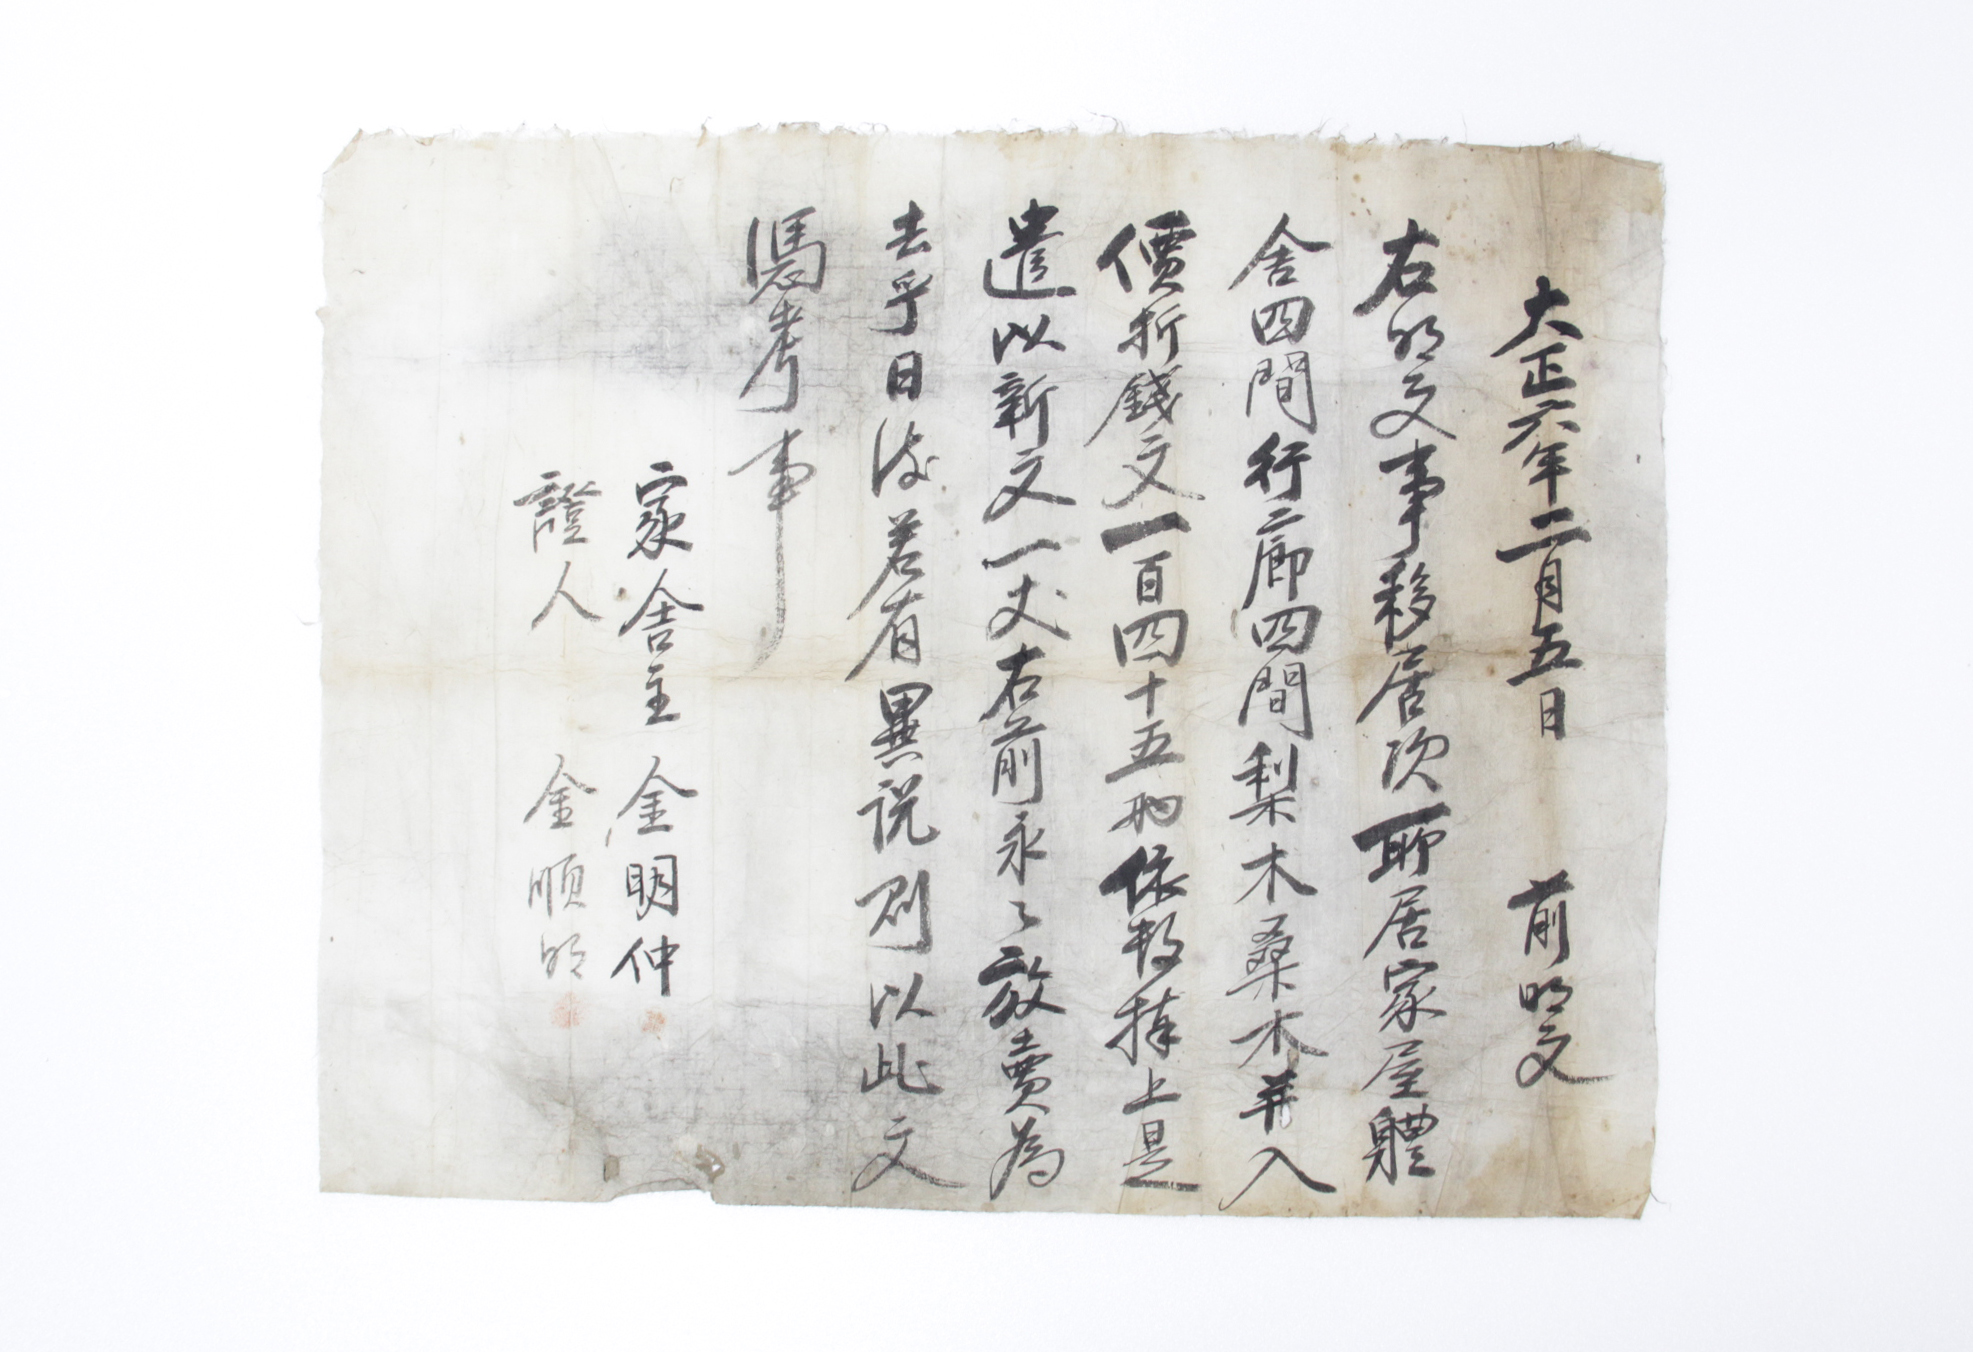 大正六年二月五日 前明文
右明文事移居次所居家屋體
舍四間行廊四間梨木桑木幷入
價折錢文一百四十五兩依數捧上是
遣以新文一丈右前永々放賣為
去乎日後若有異說則以此文
憑考事
家舍主 金明仲
證人 金順明